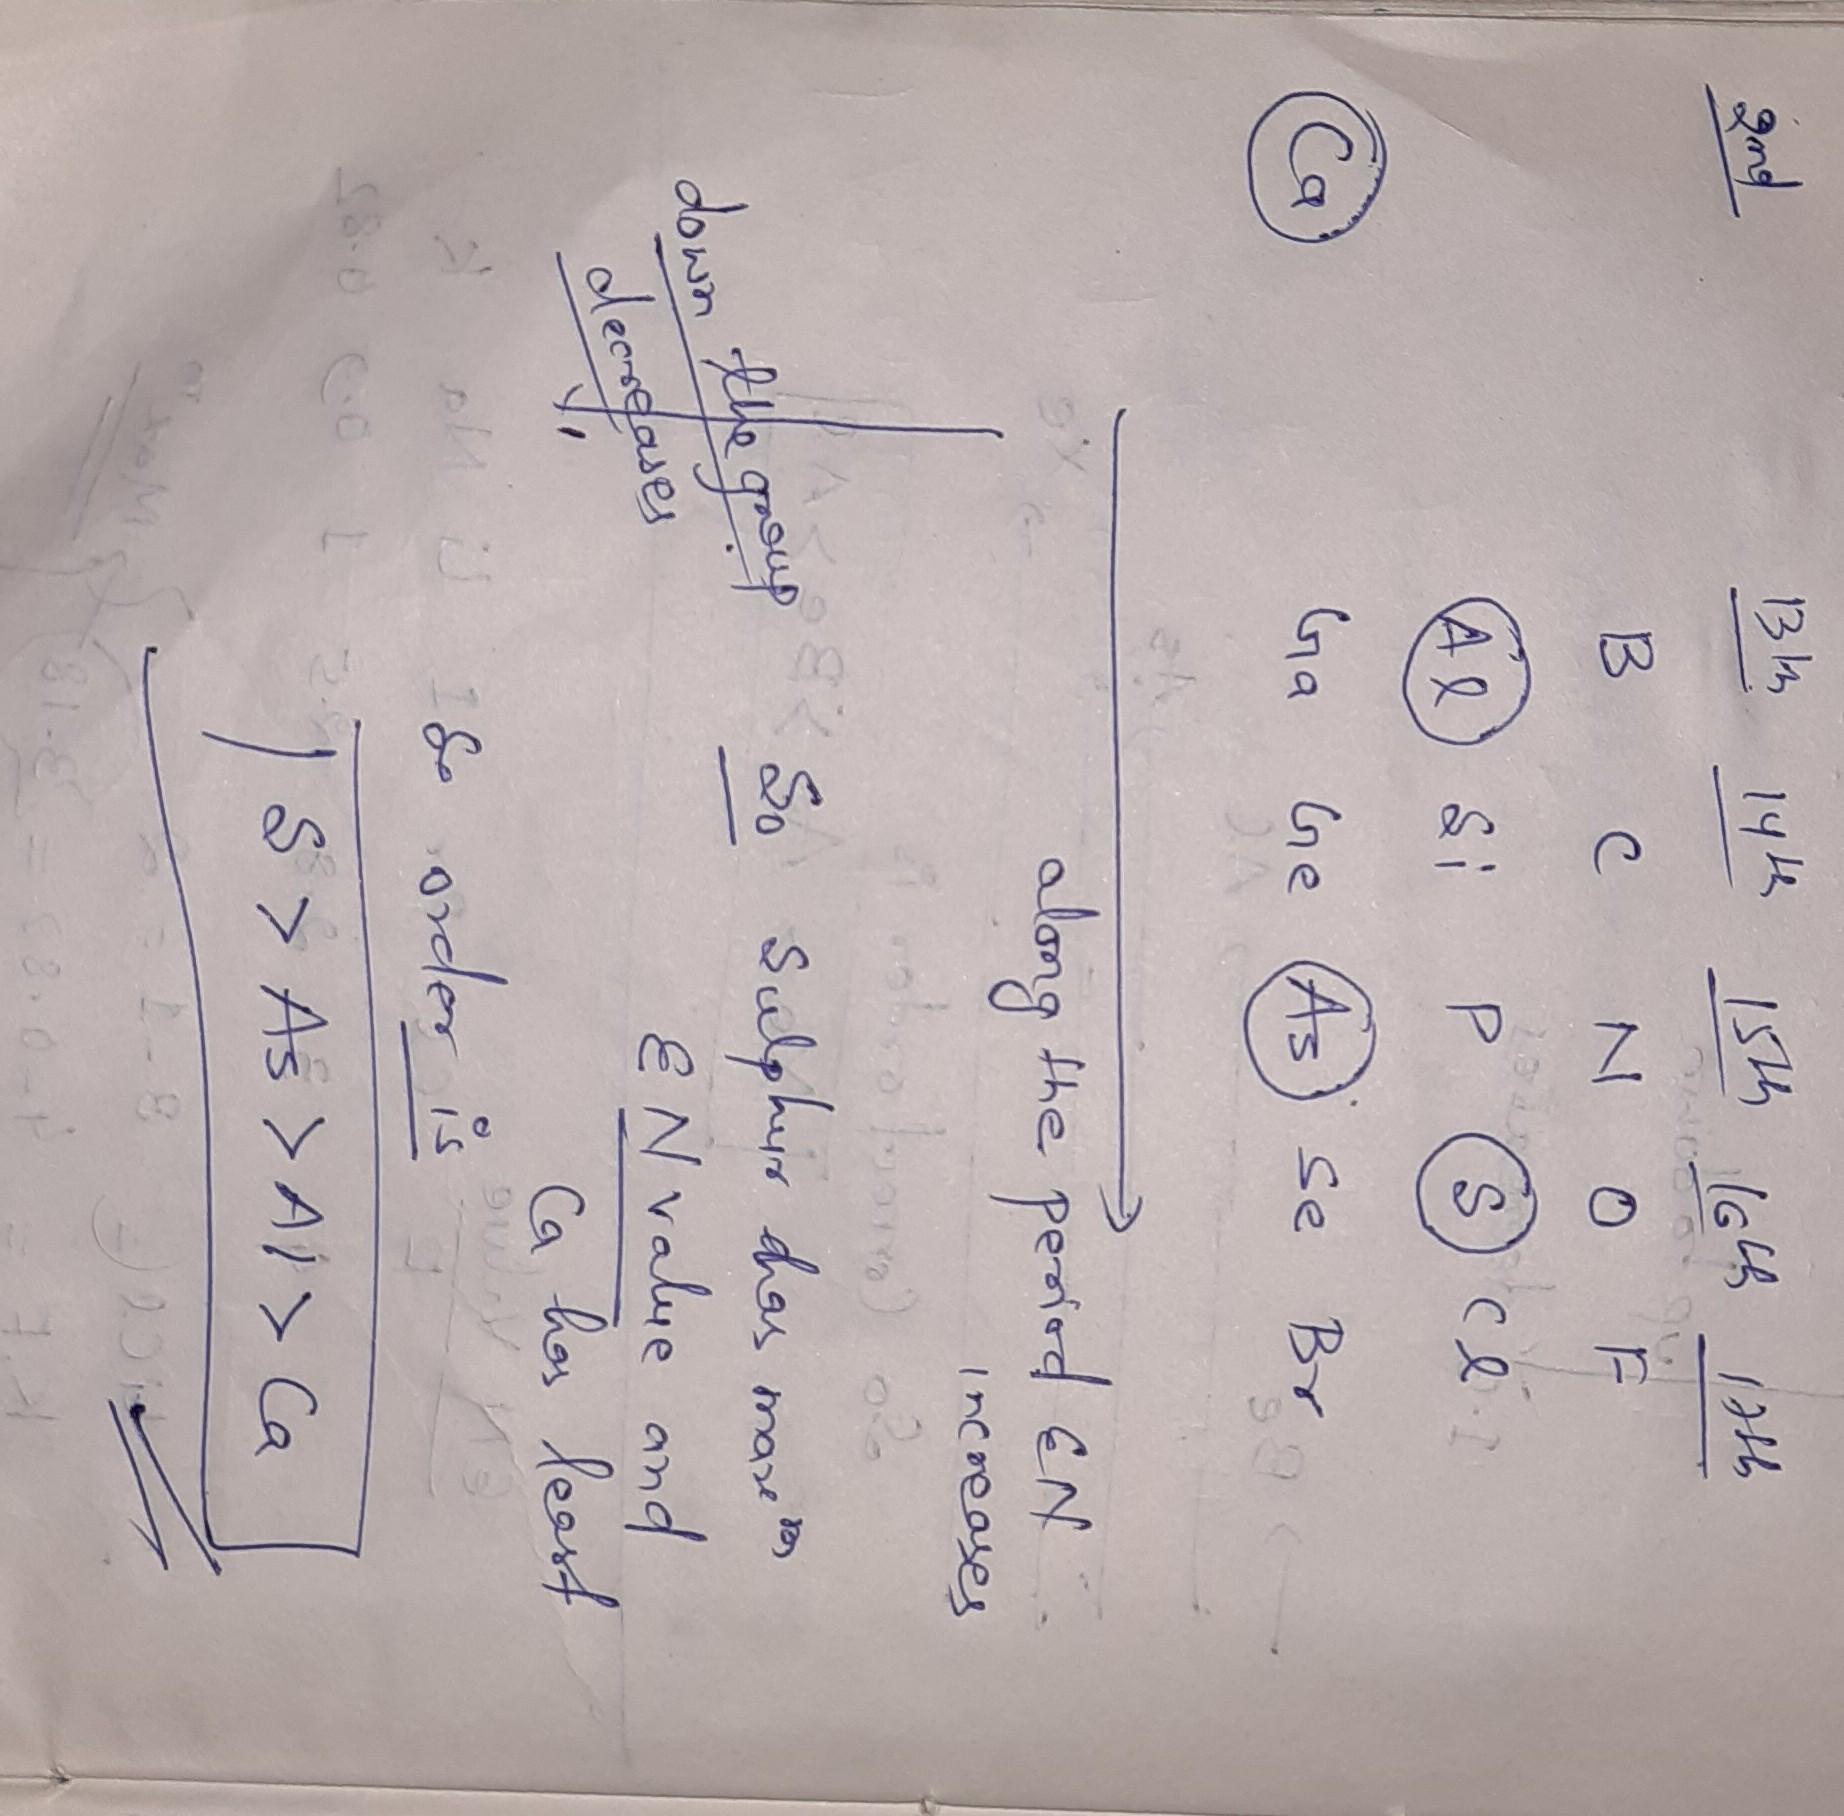 2nd 13th 14th 15th 16th 17th
B C N O F
Al Si P S Cl
Ca Ga Ge As Se Br
along the period EN
increases
down the group
decreases
So Sulphur has maxm
EN value and
Ca has least
So order is
S > As > Al > Ca